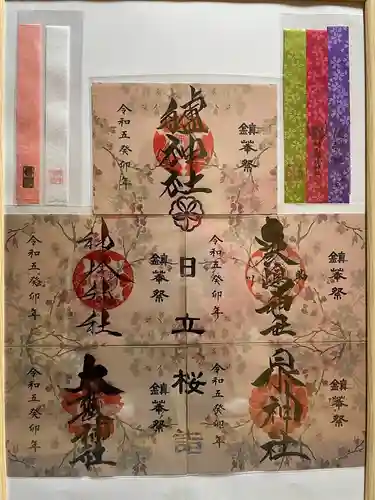 鎮華祭
艫神社
令和五癸卯年
鎮華祭
令和五癸卯年
鎮華祭
令和五癸卯年
日立桜詣
鎮華祭
泉神社
令和五癸卯年
鎮華祭
大甕神社
令和五癸卯年